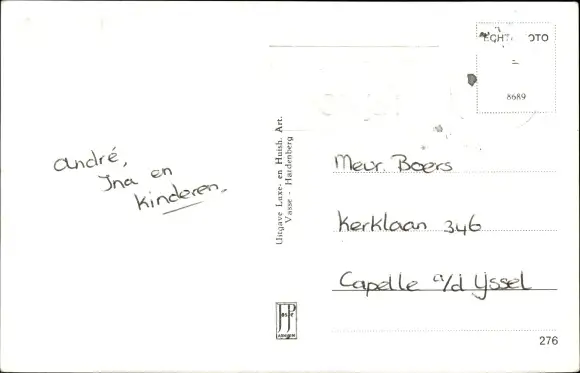 André,
Ina en
kinderen.
Uitgave Luxe- en Huish. Art.
Vasse - Hardenberg
ECHT. OTO
8689
Mevr. Boers
Kerklaan 346
Capelle a/d IJssel
JosPé
ARNHEM
276